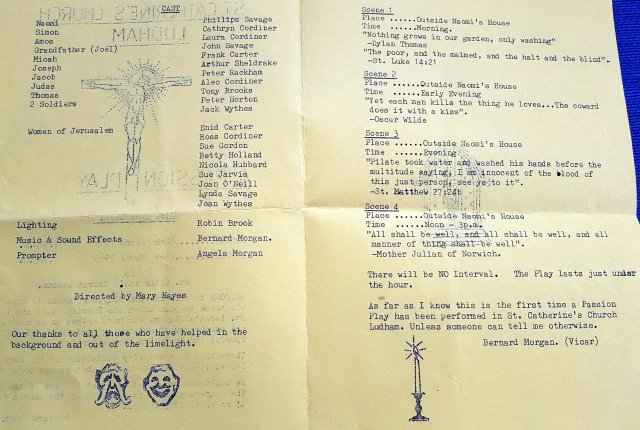 CAST
Naomi Phillipa Savage
Simon Cathryn Cordiner
Amos Laura Cordiner
Grandfather (Joel) John Savage
Micah Frank Carter
Joseph Arthur Sheldrake
Jacob Peter Rackham
Judas Alec Cordiner
Thomas Tony Brooks
2 Soldiers Peter Horton
Jack Wythes
Women of Jerusalem Enid Carter
Ross Cordiner
Sue Gordon
Betty Holland
Nicola Hubbard
Sue Jarvia
Joan O'Neill
Lynda Savage
Joan Wythes
Lighting Robin Brook
Music & Sound Effects Bernard Morgan.
Prompter Angela Morgan
Directed by Mary Hayes
Our thanks to all those who have helped in the
background and out of the limelight.
Scene 1
Place ......Outside Naomi's House
Time ......Morning.
"Nothing grows in our garden, only washing"
-Dylan Thomas
"The poor, and the maimed, and the halt and the blind".
-St. Luke 14:21
Scene 2
Place ......Outside Naomi's House
Time ......Early Evening
"Yet each man kills the thing he loves...The coward
does it with a kiss".
-Oscar Wilde
Scene 3
Place ......Outside Naomi's House
Time ......Evening
"Pilate took water and washed his hands before the
multitude saying, I am innocent of the blood of
this just person, see ye to it".
-St. Matthew 27:24b
Scene 4
Place ......Outside Naomi's House
Time ......Noon - 3p.m.
"All shall be well, and all shall be well, and all
manner of thing shall be well".
-Mother Julian of Norwich.
There will be NO Interval. The Play lasts just under
the hour.
As far as I know this is the first time a Passion
Play has been performed in St. Catherine's Church
Ludham. Unless someone can tell me otherwise.
Bernard Morgan. (Vicar)